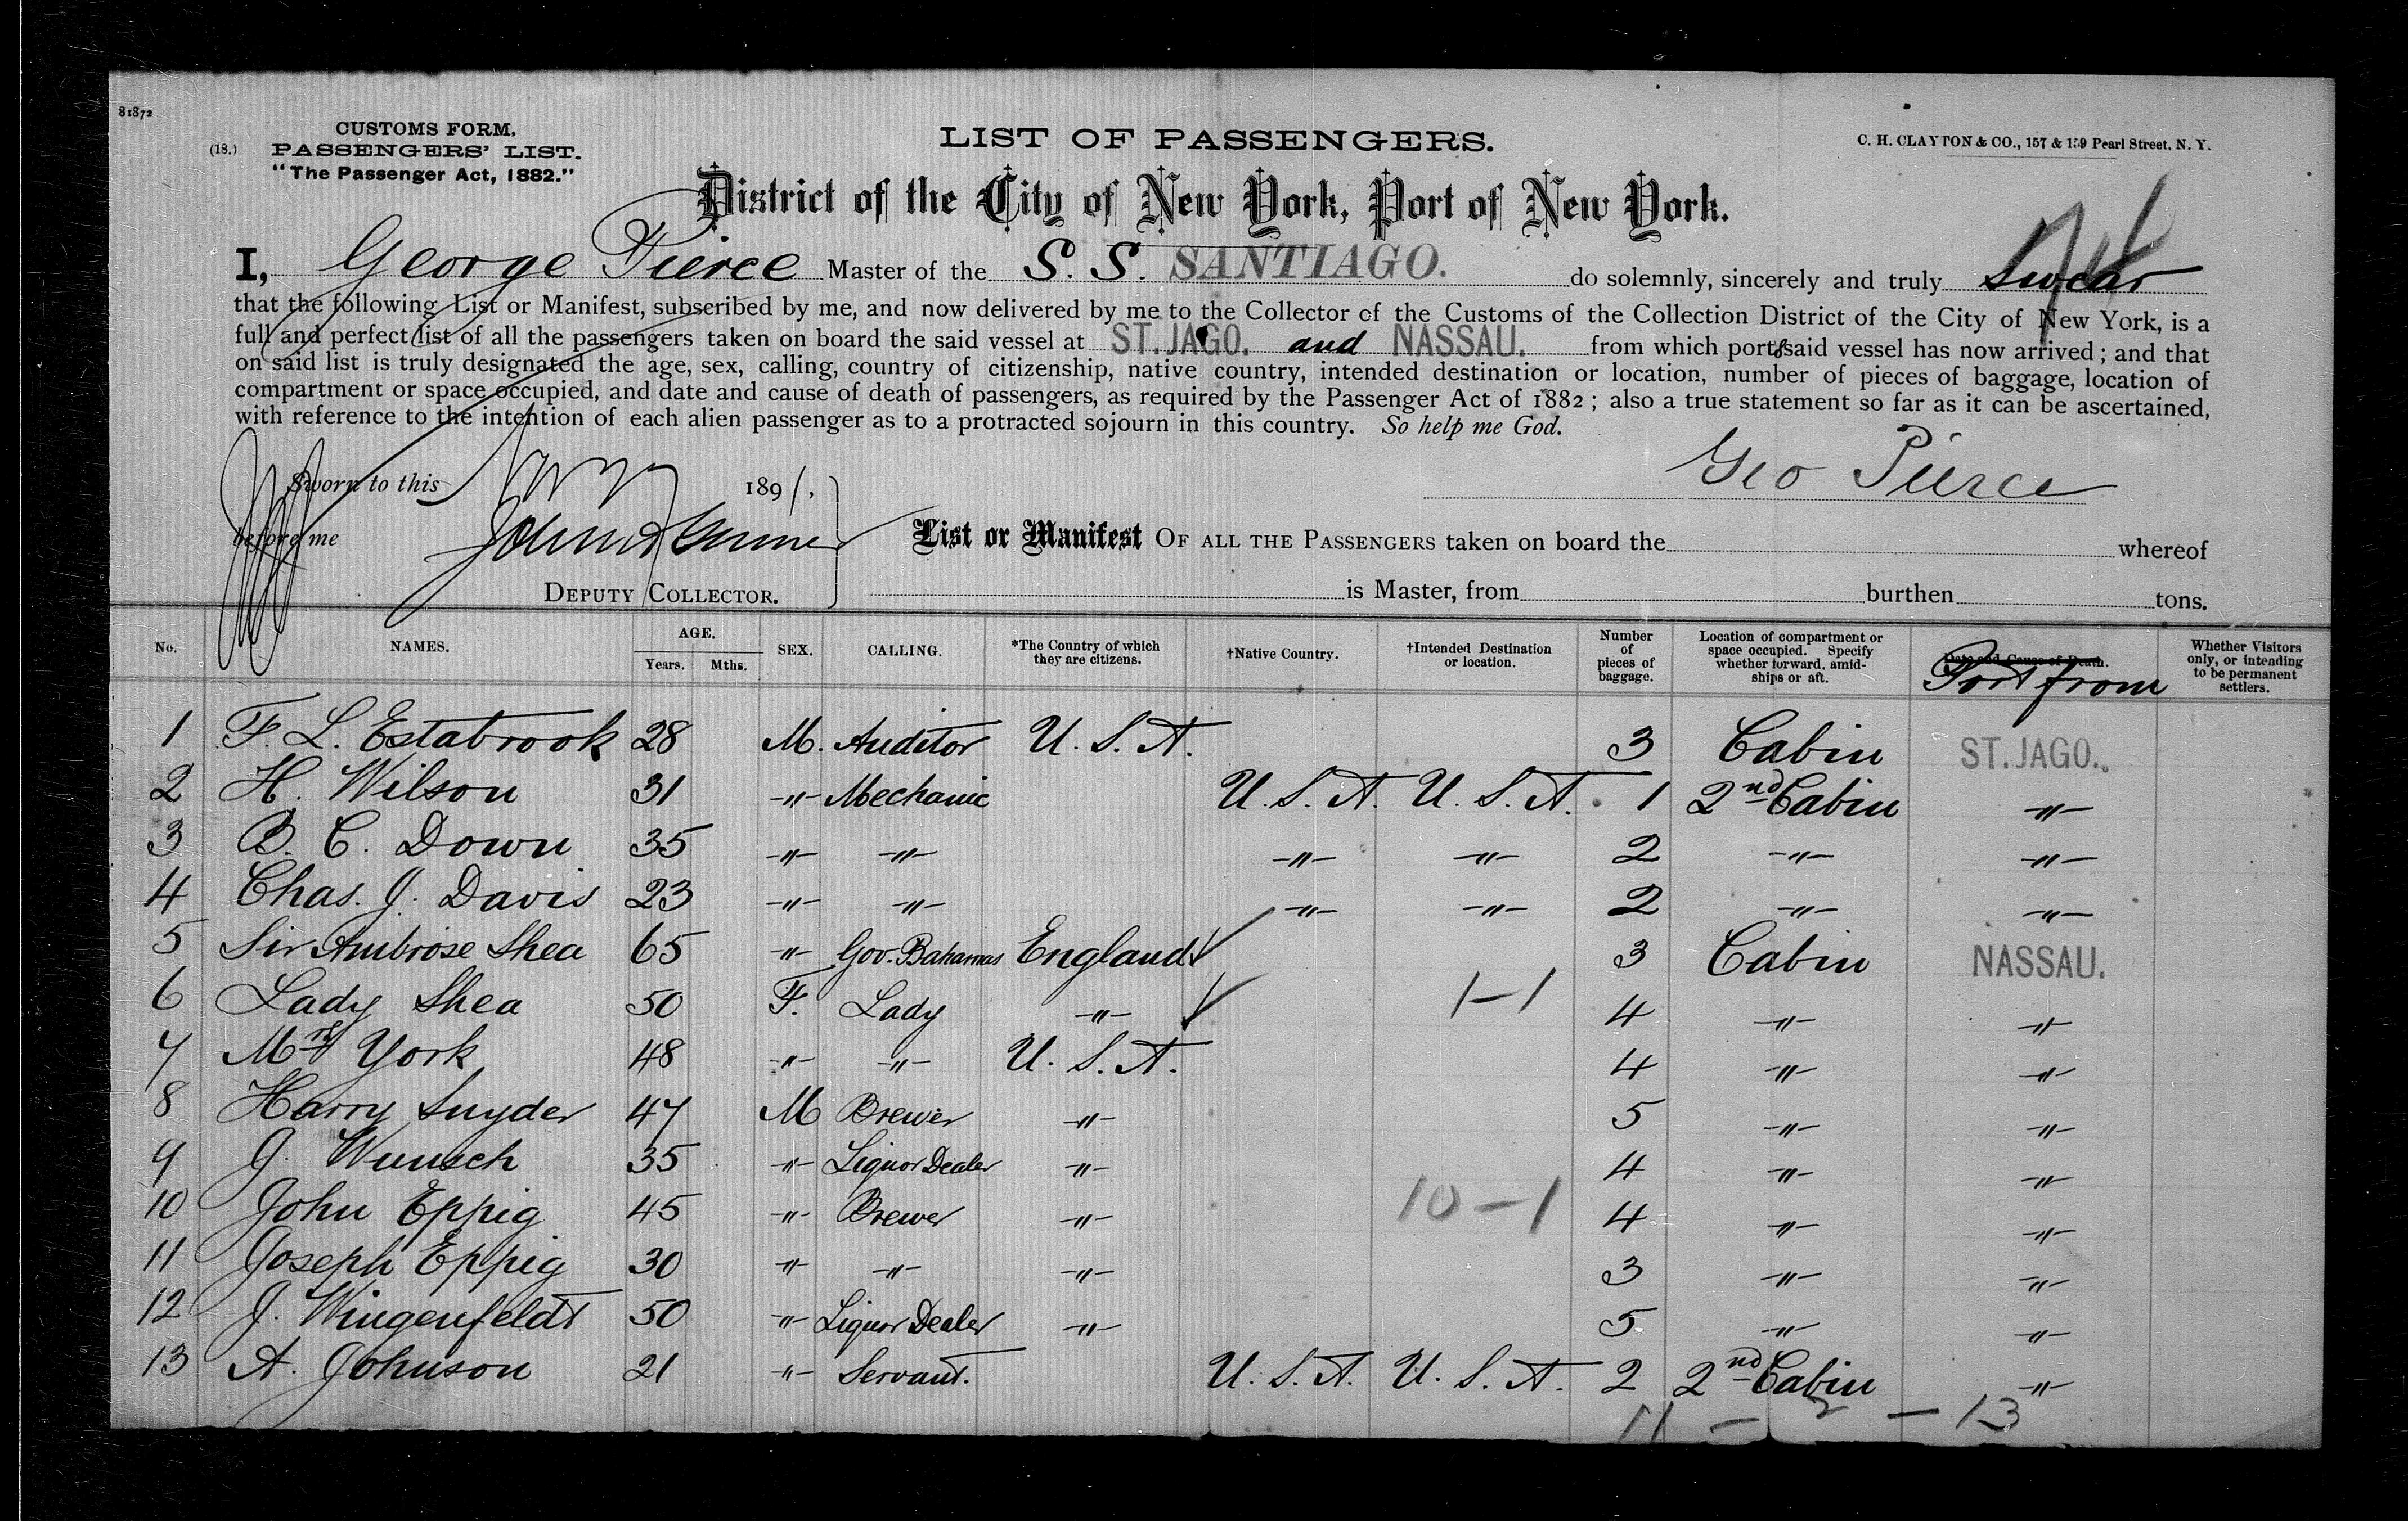 81872
CUSTOMS FORM.
(18.) PASSENGERS' LIST.
"The Passenger Act, 1882."
LIST OF PASSENGERS.
C. H. CLAYTON & CO., 157 & 159 Pearl Street, N. Y.
District of the City of New York, Port of New York.
I, George Pierce Master of the S. S. SANTIAGO. do solemnly, sincerely and truly swear
that the following List or Manifest, subscribed by me, and now delivered by me to the Collector of the Customs of the Collection District of the City of New York, is a
full and perfect list of all the passengers taken on board the said vessel at ST. JAGO. and NASSAU. from which ports said vessel has now arrived; and that
on said list is truly designated the age, sex, calling, country of citizenship, native country, intended destination or location, number of pieces of baggage, location of
compartment or space occupied, and date and cause of death of passengers, as required by the Passenger Act of 1882; also a true statement so far as it can be ascertained,
with reference to the intention of each alien passenger as to a protracted sojourn in this country. So help me God.
Geo Pierce
Sworn to this 1891,
before me
DEPUTY COLLECTOR.
List or Manifest OF ALL THE PASSENGERS taken on board the whereof
is Master, from burthen tons.
No. NAMES. AGE. Years. Mths. SEX. CALLING. *The Country of which they are citizens. †Native Country. †Intended Destination or location. Number of pieces of baggage. Location of compartment or space occupied. Specify whether forward, amidships or aft. Date and Cause of Death. Port from Whether Visitors only, or intending to be permanent settlers.
1 F. L. Estabrook 28 M. Auditor U. S. A. 3 Cabin ST. JAGO.
2 H. Wilson 31 -"- Mechanic U. S. A. U. S. A. 1 2nd Cabin -"-
3 B. C. Down 35 -"- -"- -"- -"- 2 -"- -"-
4 Chas. J. Davis 23 -"- -"- -"- -"- 2 -"- -"-
5 Sir Ambrose Shea 65 -"- Gov. Bahamas England 3 Cabin NASSAU.
6 Lady Shea 50 F. Lady -"- 1-1 4 -"- -"-
7 Mrs York 48 -"- -"- U. S. A. 4 -"- -"-
8 Harry Snyder 47 M Brewer -"- 5 -"- -"-
9 J. Wunsch 35 -"- Liquor Dealer -"- 4 -"- -"-
10 John Eppig 45 -"- Brewer -"- 10-1 4 -"- -"-
11 Joseph Eppig 30 -"- -"- -"- 3 -"- -"-
12 J. Wingenfeldt 50 -"- Liquor Dealer -"- 5 -"- -"-
13 A. Johnson 21 -"- Servant. U. S. A. U. S. A. 2 2nd Cabin -"-
11 - 2 - 13